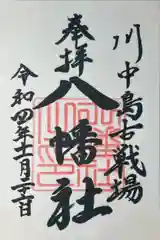 川中島古戦場
奉拝
八幡社
令和四年十一月二十二日